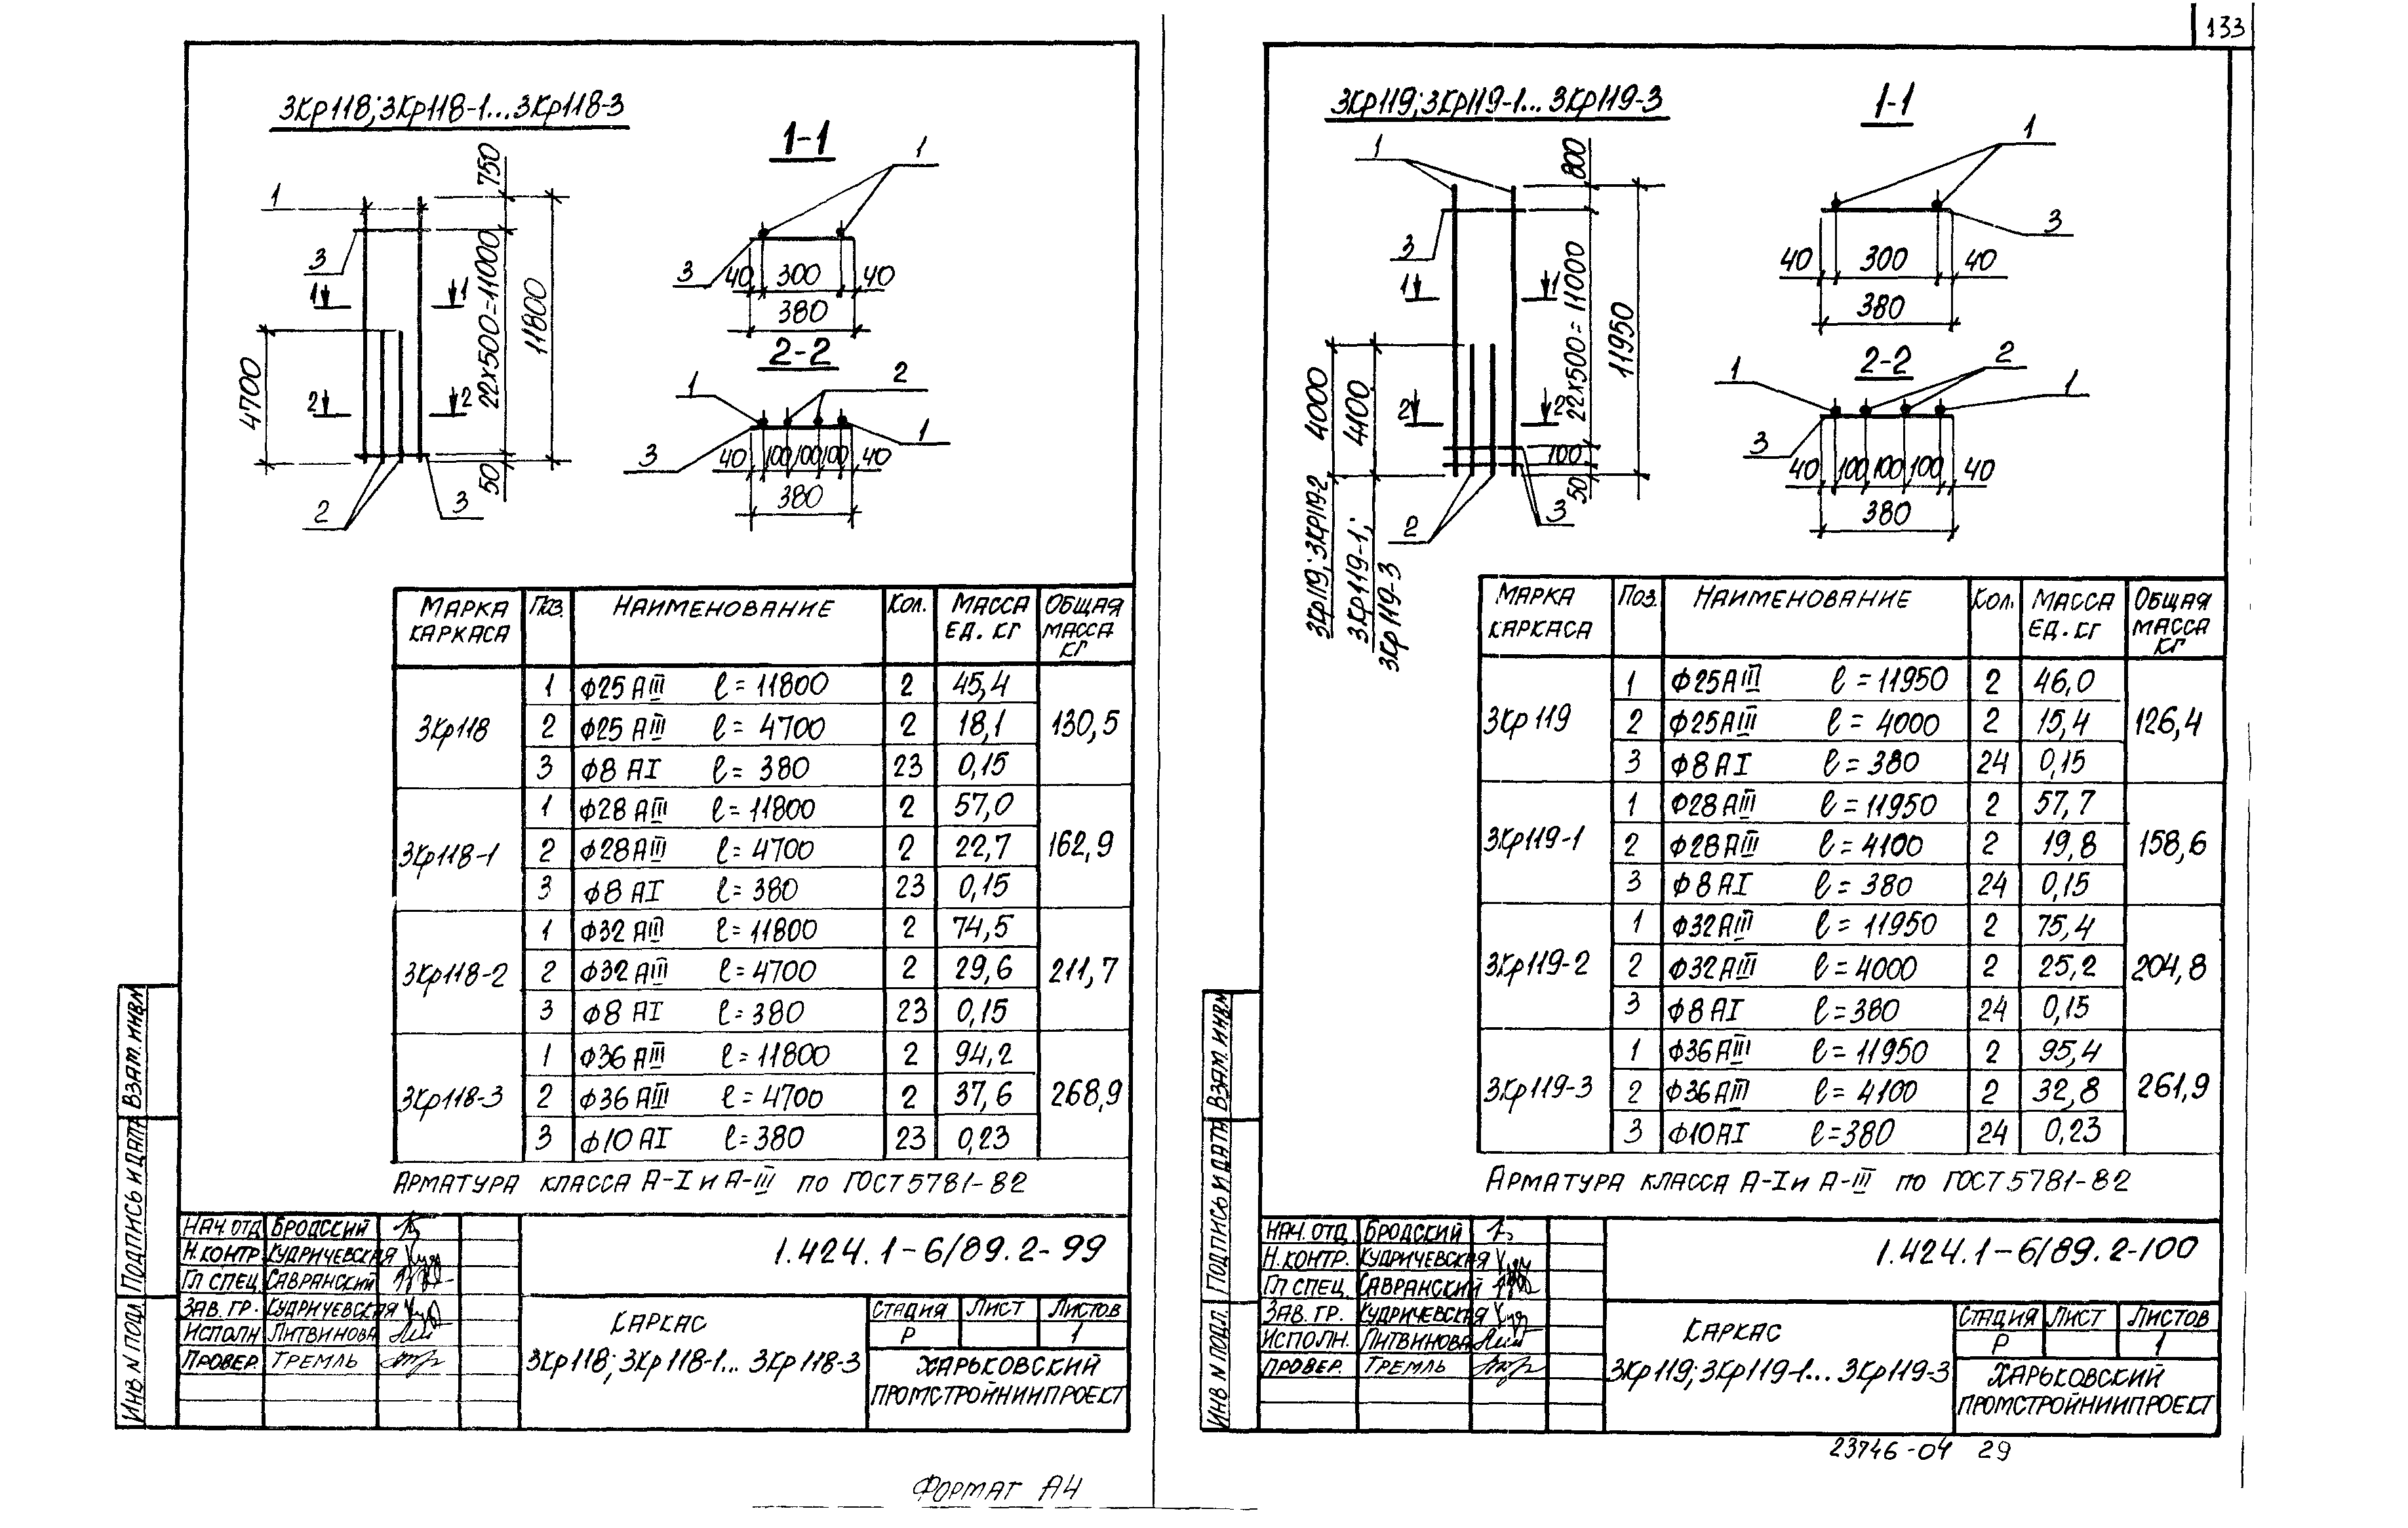 133
3Кр118; 3Кр118-1... 3Кр118-3
1-1
1
1
3
3
1
1
2
2
4700
750
22x500=11000
11800
50
2
3
40
300
40
380
2-2
1
2
3
1
40
100
100
100
40
380
МАРКА КАРКАСА
Поз.
НАИМЕНОВАНИЕ
Кол.
МАССА ЕД. КГ
ОБЩАЯ МАССА КГ
3Кр118
1 Ф25 АIII ℓ=11800 2 45,4
2 Ф25 АIII ℓ=4700 2 18,1
3 Ф8 АI ℓ=380 23 0,15
130,5
3Кр118-1
1 Ф28 АIII ℓ=11800 2 57,0
2 Ф28 АIII ℓ=4700 2 22,7
3 Ф8 АI ℓ=380 23 0,15
162,9
3Кр118-2
1 Ф32 АIII ℓ=11800 2 74,5
2 Ф32 АIII ℓ=4700 2 29,6
3 Ф8 АI ℓ=380 23 0,15
211,7
3Кр118-3
1 Ф36 АIII ℓ=11800 2 94,2
2 Ф36 АIII ℓ=4700 2 37,6
3 Ф10 АI ℓ=380 23 0,23
268,9
АРМАТУРА КЛАССА А-I и А-III по ГОСТ 5781-82
НАЧ. ОТД. БРОДСКИЙ
Н.КОНТР. КУДРИЧЕВСКАЯ
ГЛ СПЕЦ. САВРАНСКИЙ
ЗАВ. ГР. КУДРИЧЕВСКАЯ
ИСПОЛН. ЛИТВИНОВА
ПРОВЕР. ТРЕМЛЬ
1.424.1-6/89.2-99
КАРКАС
3Кр118; 3Кр118-1... 3Кр118-3
СТАДИЯ ЛИСТ ЛИСТОВ
Р 1
ХАРЬКОВСКИЙ
ПРОМСТРОЙНИИПРОЕКТ
ИНВ N ПОДЛ. ПОДПИСЬ И ДАТА ВЗАМ. ИНВ N
ФОРМАТ А4
3Кр119; 3Кр119-1... 3Кр119-3
1-1
1
1
3
3
1
1
2
2
4000
4100
3Кр119; 3Кр119-2
3Кр119-1;
3Кр119-3
800
22x500=11000
11950
100
50
2
3
40
300
40
380
2-2
1
2
1
3
40
100
100
100
40
380
МАРКА КАРКАСА
Поз.
НАИМЕНОВАНИЕ
Кол.
МАССА ЕД. КГ
ОБЩАЯ МАССА КГ
3Кр119
1 Ф25 АIII ℓ=11950 2 46,0
2 Ф25 АIII ℓ=4000 2 15,4
3 Ф8 АI ℓ=380 24 0,15
126,4
3Кр119-1
1 Ф28 АIII ℓ=11950 2 57,7
2 Ф28 АIII ℓ=4100 2 19,8
3 Ф8 АI ℓ=380 24 0,15
158,6
3Кр119-2
1 Ф32 АIII ℓ=11950 2 75,4
2 Ф32 АIII ℓ=4000 2 25,2
3 Ф8 АI ℓ=380 24 0,15
204,8
3Кр119-3
1 Ф36 АIII ℓ=11950 2 95,4
2 Ф36 АIII ℓ=4100 2 32,8
3 Ф10 АI ℓ=380 24 0,23
261,9
АРМАТУРА КЛАССА А-I и А-III по ГОСТ 5781-82
НАЧ. ОТД. БРОДСКИЙ
Н.КОНТР. КУДРИЧЕВСКАЯ
ГЛ СПЕЦ. САВРАНСКИЙ
ЗАВ. ГР. КУДРИЧЕВСКАЯ
ИСПОЛН. ЛИТВИНОВА
ПРОВЕР. ТРЕМЛЬ
1.424.1-6/89.2-100
КАРКАС
3Кр119; 3Кр119-1... 3Кр119-3
СТАДИЯ ЛИСТ ЛИСТОВ
Р 1
ХАРЬКОВСКИЙ
ПРОМСТРОЙНИИПРОЕКТ
ИНВ N ПОДЛ. ПОДПИСЬ И ДАТА ВЗАМ. ИНВ N
23746-04 29